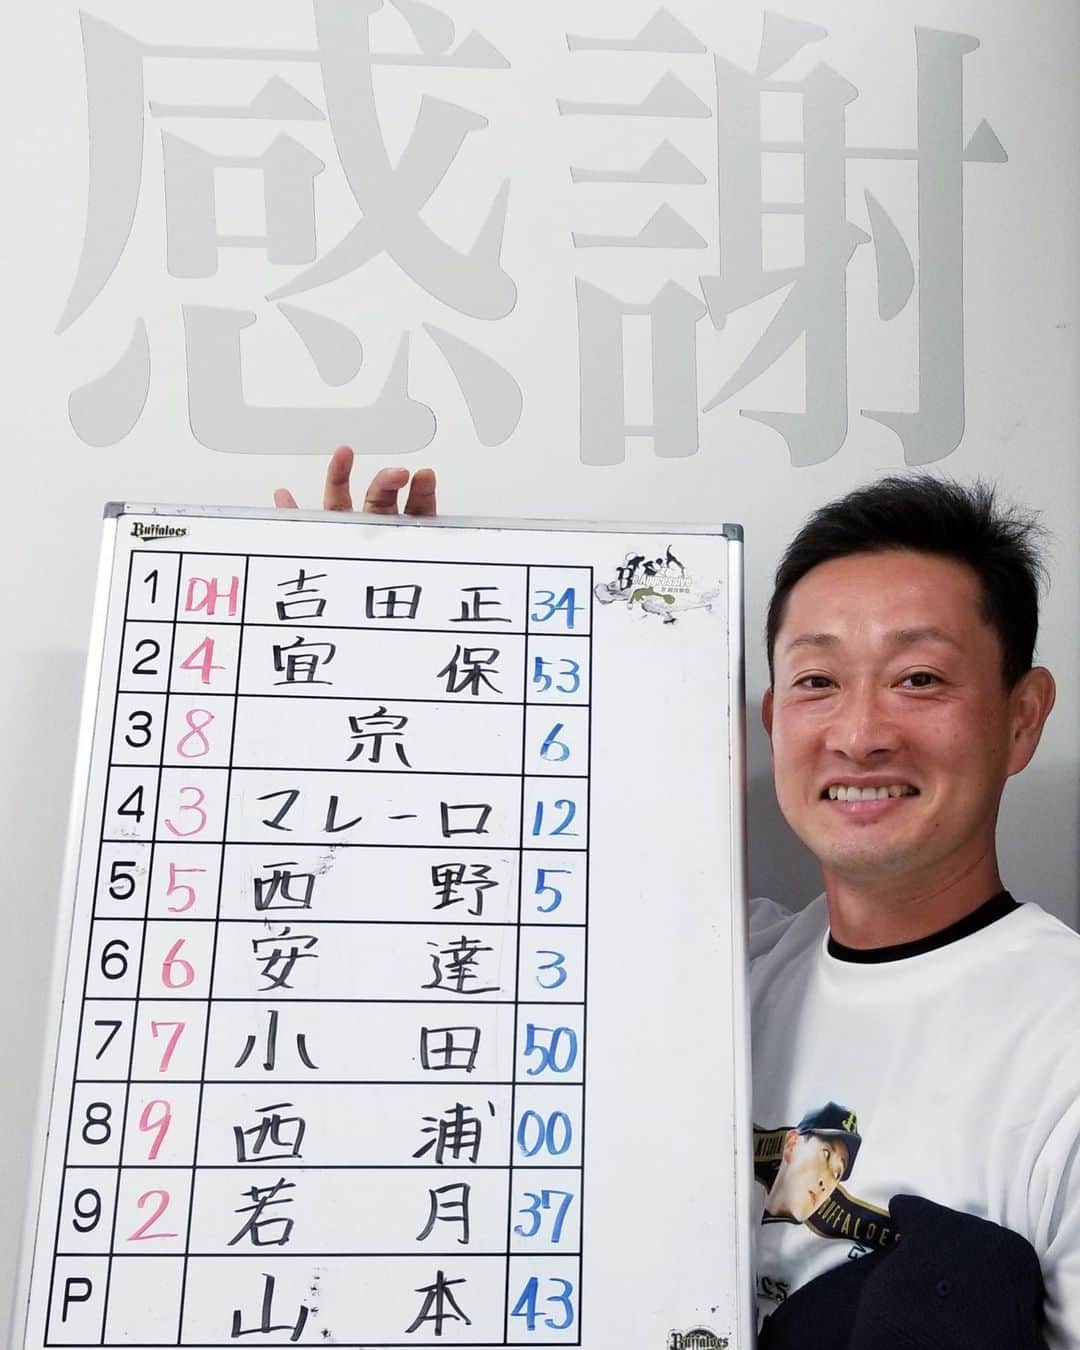 感謝
Buffaloes
Be Aggressive
1 DH 吉田正 34
2 4 宜保 53
3 8 宗 6
4 3 マレーロ 12
5 5 西野 5
6 6 安達 3
7 7 小田 50
8 9 西浦 00
9 2 若月 37
P 山本 43
BUFFALOES
Buffaloes